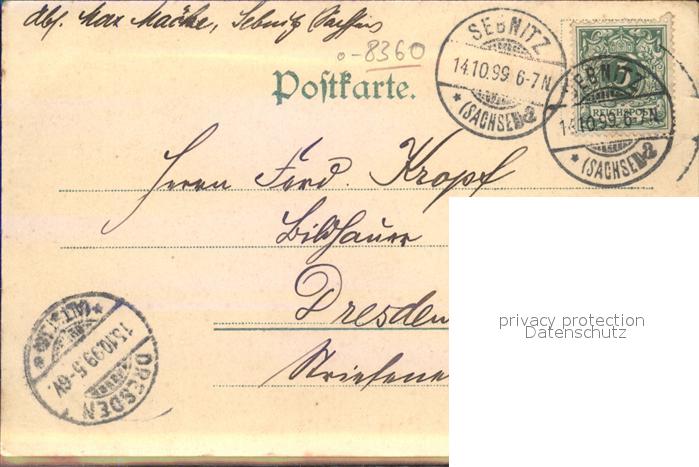 Abs. Max Macke, Sebnitz Sachsen
8360
Postkarte.
SEBNITZ
14.10.99 6-7N
* (SACHSEN) a
SEBNITZ
14.10.99 6-7N
* (SACHSEN) a
5
REICHSPOST
Herrn Ferd. Kropf
Bildhauer
Dresden
Striesen
DRESDEN
15.10.99.5-6V.
privacy protection
Datenschutz